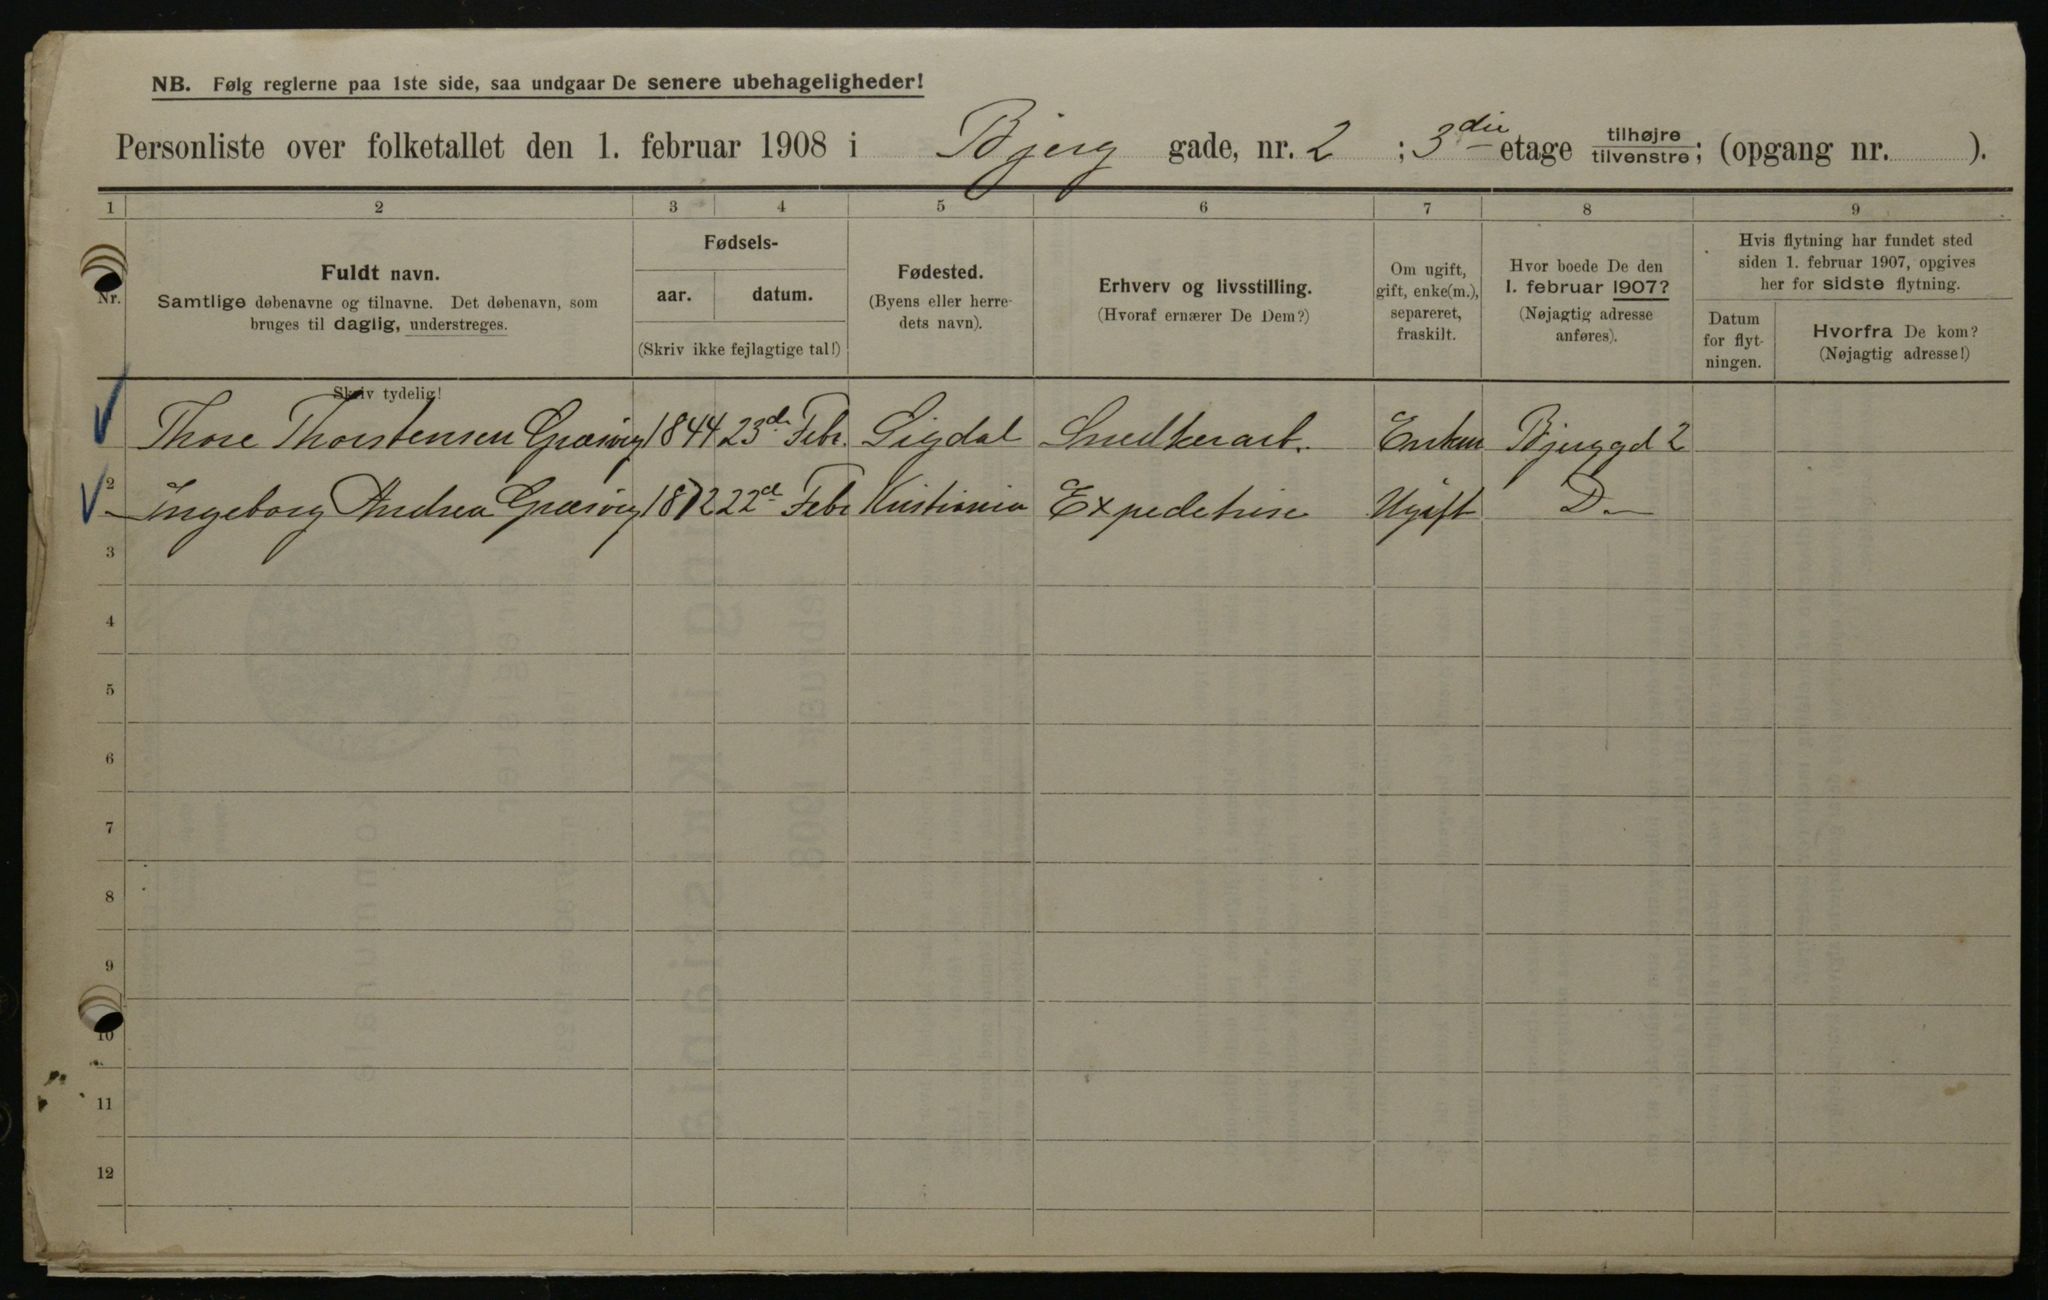 NB. Følg reglerne paa 1ste side, saa undgaar De senere ubehageligheder!
Personliste over folketallet den 1. februar 1908 i Bjerg gade, nr. 2 ; 3die etage tilhøjre / tilvenstre; (opgang nr. ).
1 2 3 4 5 6 7 8 9
Nr.
Fuldt navn.
Samtlige døbenavne og tilnavne. Det døbenavn, som
bruges til daglig, understreges.
Skriv tydelig!
Fødsels-
aar. datum.
(Skriv ikke fejlagtige tal!)
Fødested.
(Byens eller herre-
dets navn).
Erhverv og livsstilling.
(Hvoraf ernærer De Dem?)
Om ugift,
gift, enke(m.),
separeret,
fraskilt.
Hvor boede De den
1. februar 1907?
(Nøjagtig adresse
anføres).
Hvis flytning har fundet sted
siden 1. februar 1907, opgives
her for sidste flytning.
Datum
for flyt-
ningen.
Hvorfra De kom?
(Nøjagtig adresse!)
Thore Thorstensen Græsvig 1844 23de Febr. Sigdal Snedkerarb. Enkem Bjerggd 2
2 Ingeborg Andrea Græsvig 1872 22d Febr Kristiania Expeditrise Ugift D.
3
4
5
6
7
8
9
10
11
12